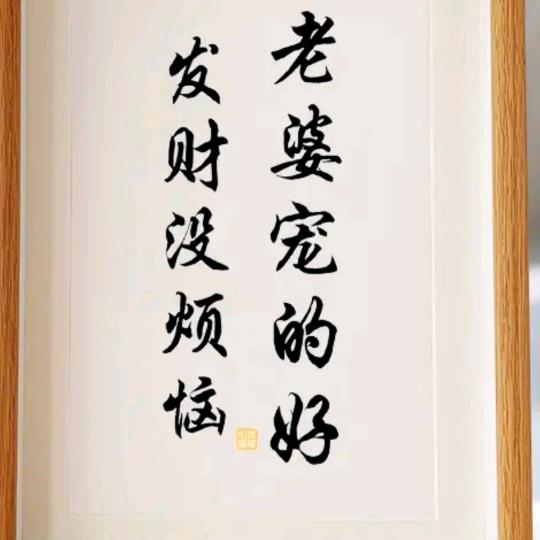 老婆宠的好
发财没烦恼